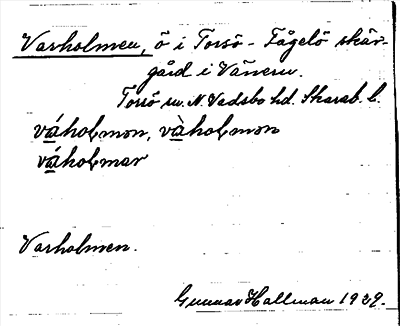 Varholmen, ö i Torsö - Fågelö skär-
gård i Vänern.
Torsö sn. N. Vadsbo hd. Skarab. l.
váholmən, vàholmən
váholmar
Varholmen.
Gunnar Hallman 1939.